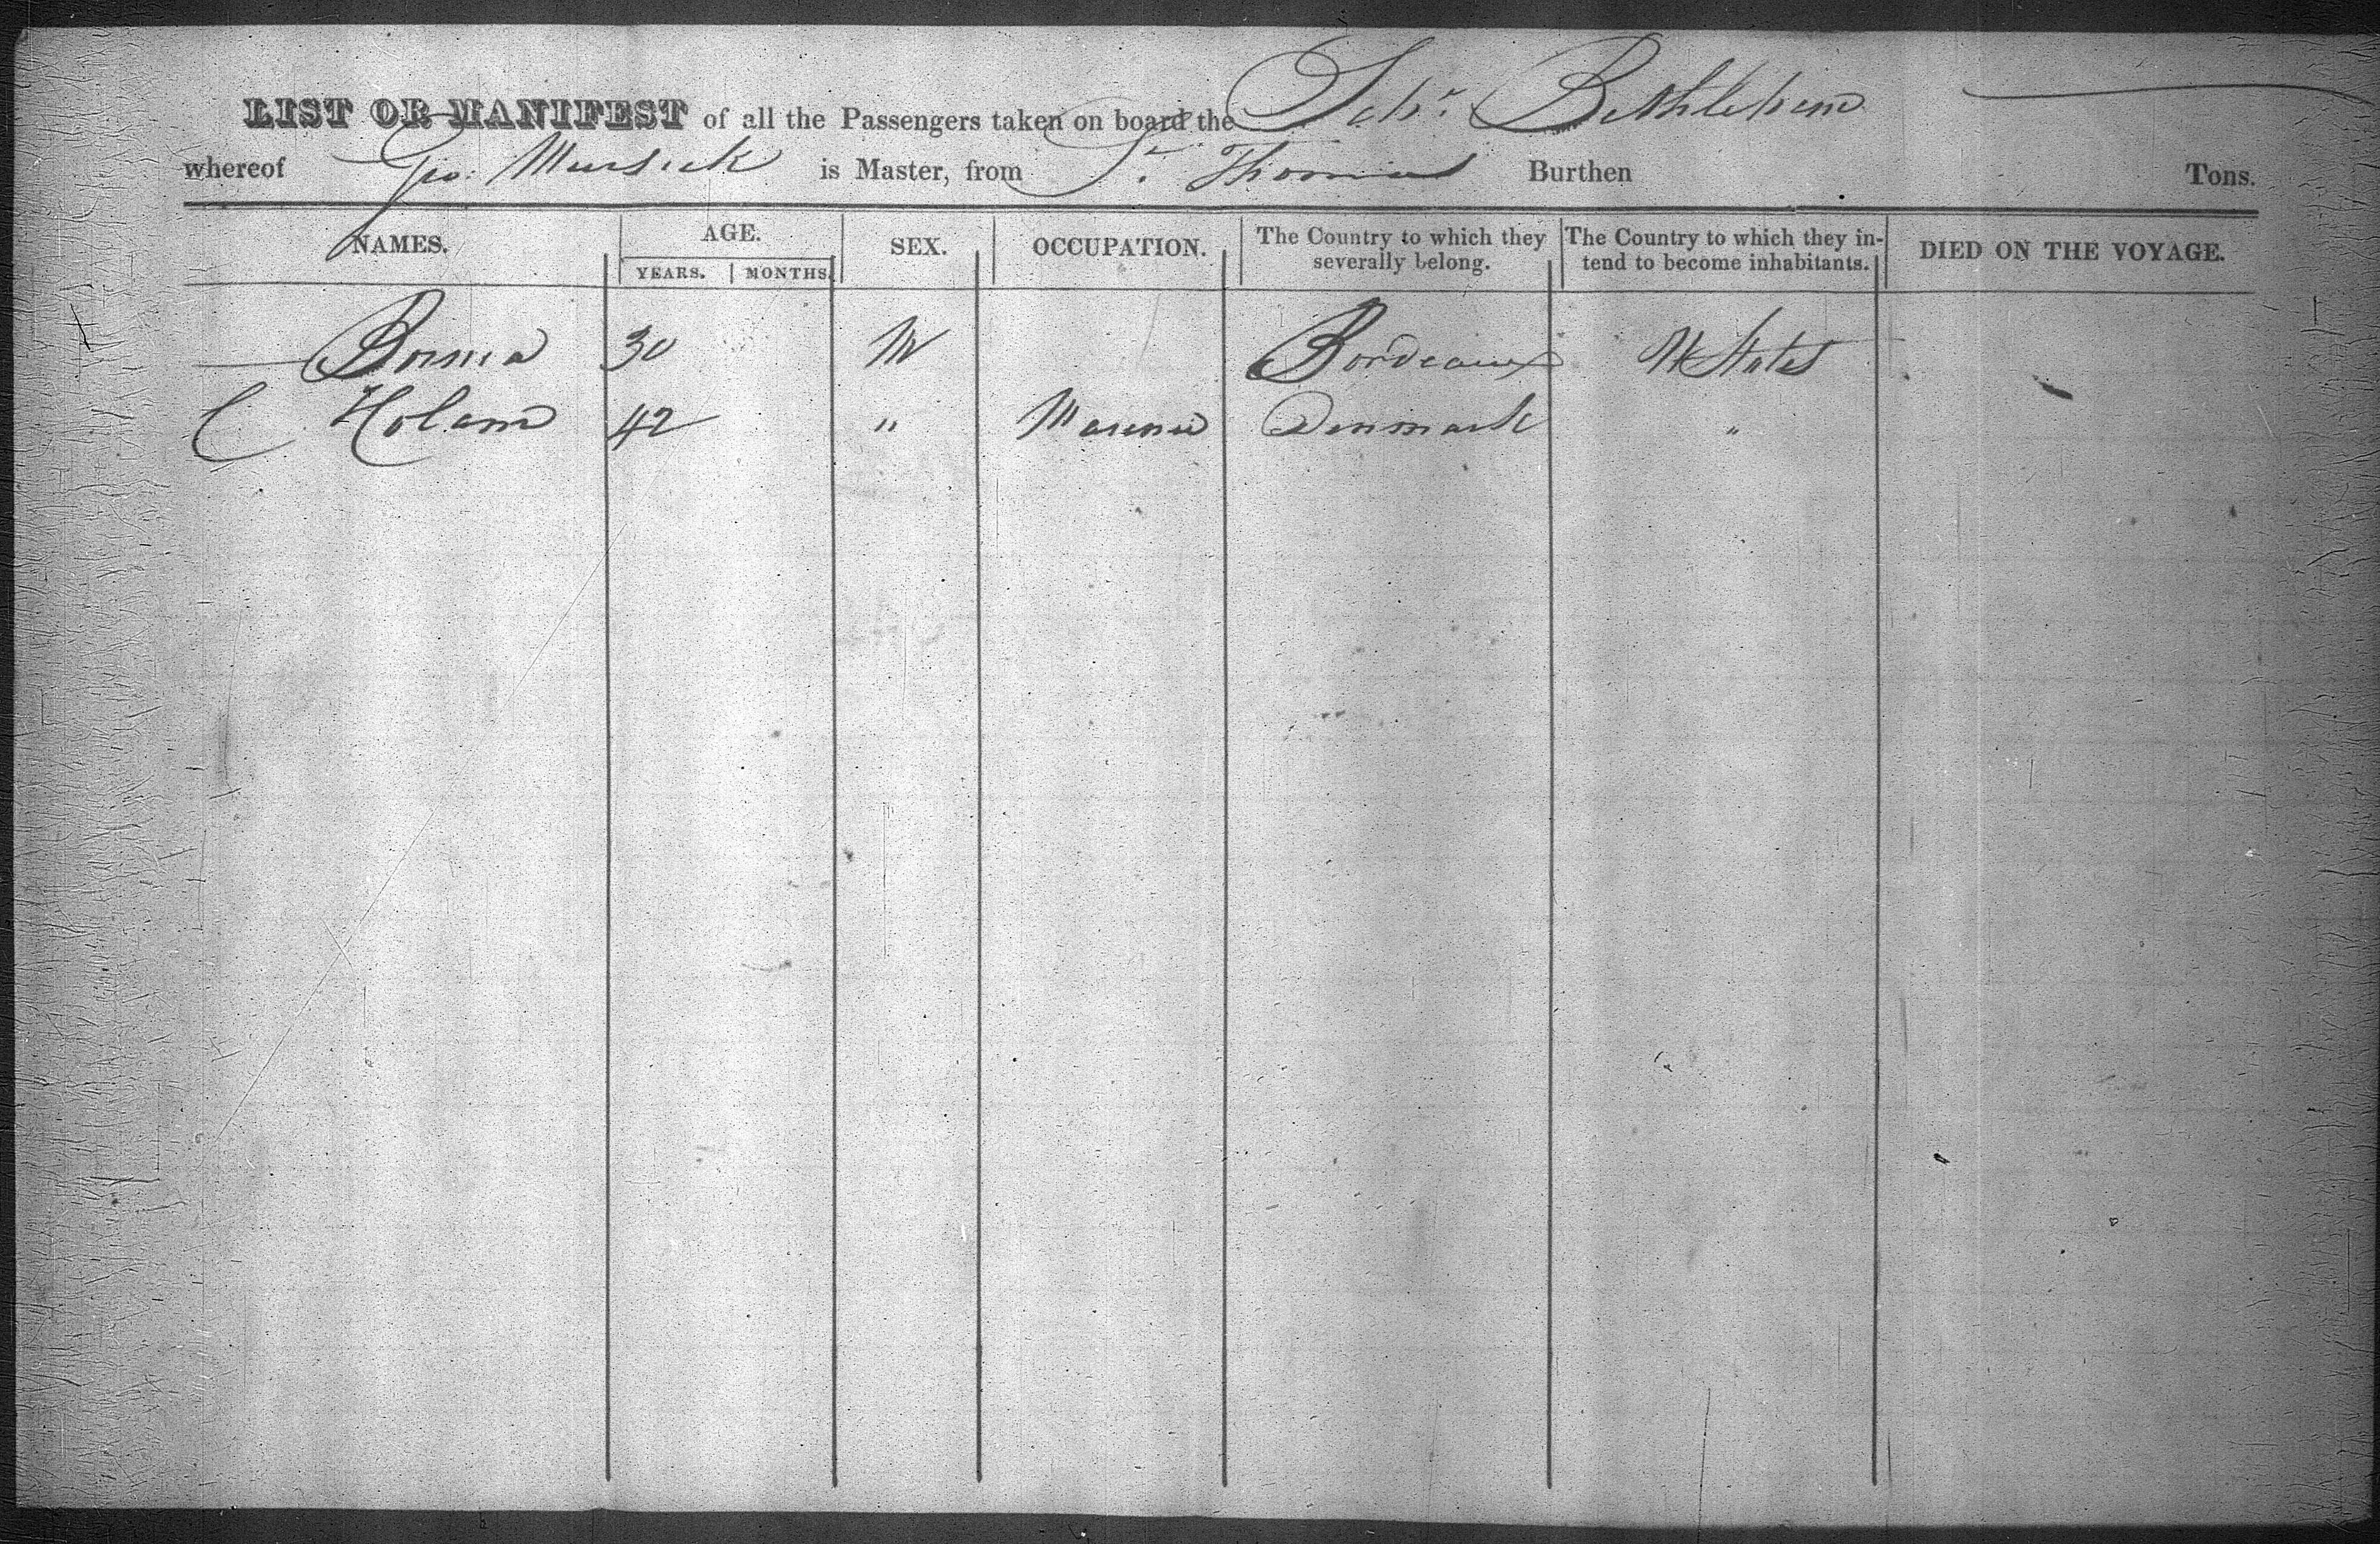 LIST OR MANIFEST of all the Passengers taken on board the Schr. Bethlehem
whereof Geo. Mursick is Master, from St. Thomas Burthen Tons.
NAMES. AGE. SEX. OCCUPATION. The Country to which they severally belong. The Country to which they in-
tend to become inhabitants. DIED ON THE VOYAGE.
YEARS. MONTHS.
30 M Bordeaux U States
C Holam 42 " Mariner Denmark "